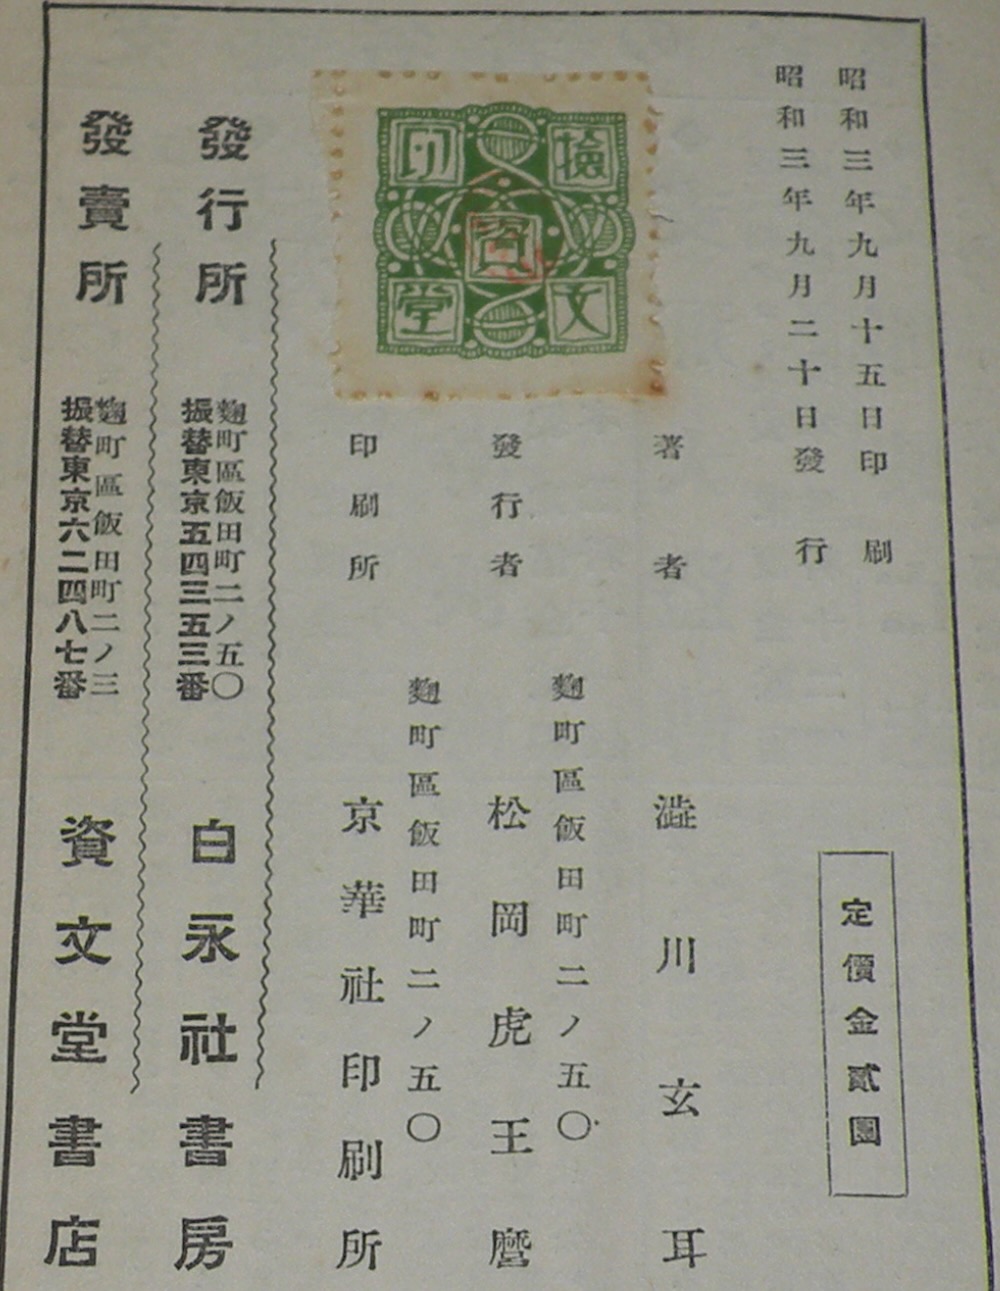 昭和三年九月十五日印刷
昭和三年九月二十日發行
定價金貳圓
檢印
文堂
資
著者 澁川玄耳
麴町區飯田町二ノ五〇
發行者 松岡虎王麿
麴町區飯田町二ノ五〇
印刷所 京華社印刷所
發行所 麴町區飯田町二ノ五〇
振替東京五四三五三番
白永社書房
發賣所 麴町區飯田町二ノ三
振替東京六二四八七番
資文堂書店